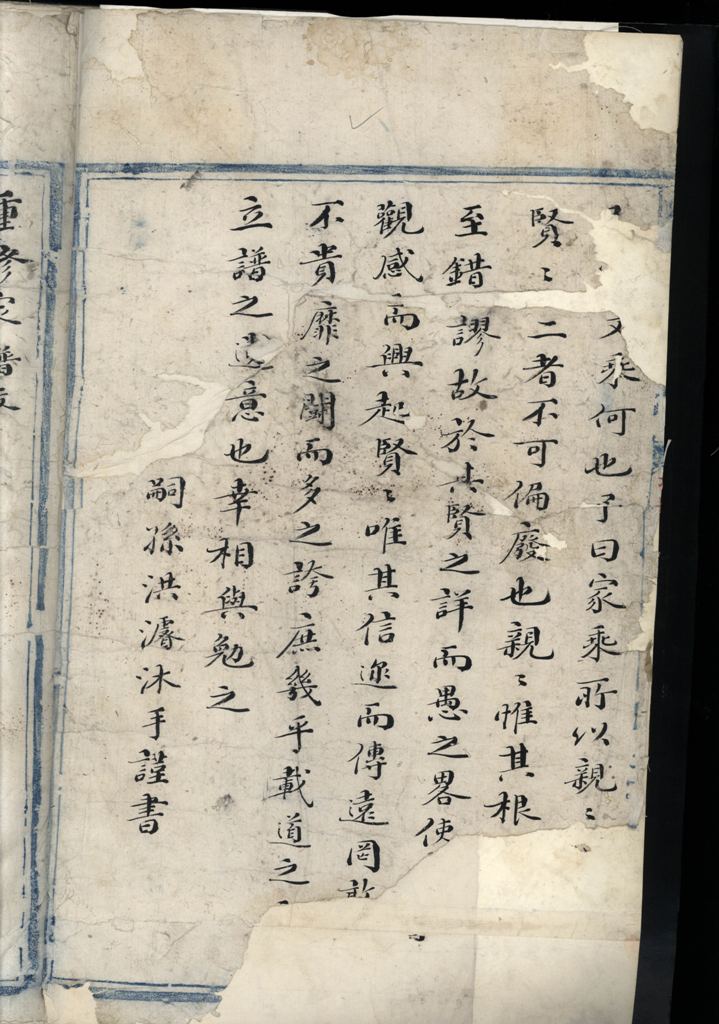 乘何也予曰家乘所以親〻
賢〻二者不可偏廢也親〻惟其根
至錯謬故於其賢之詳而愚之畧使
觀感而興起賢〻唯其信邇而傳遠罔敢
不貴靡之闘而多之誇庶幾乎載道之
立譜之遺意也幸相與勉之
嗣孫洪濬沐手謹書
重修家譜